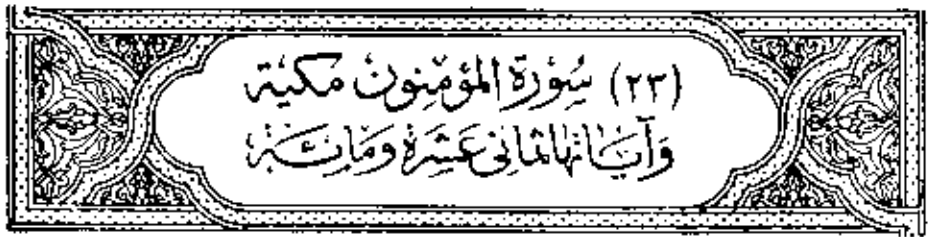 (٢٣) سُوْرَةِ المُؤمِنُونَ مَكِيَّة
وَآيَاتُهَا ثَمَانِي عَشَرَة وَمَائِة